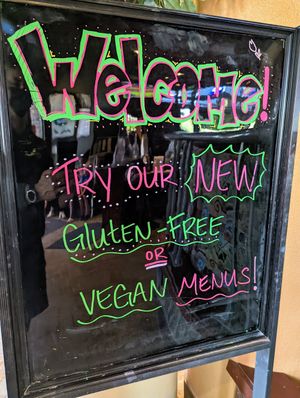 Welcome!
TRY OUR NEW
GLUTEN-FREE
OR
VEGAN MENUS!